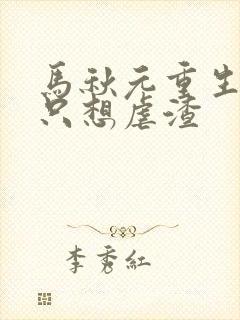 馬秋元重生
只想虐渣
李秀紅